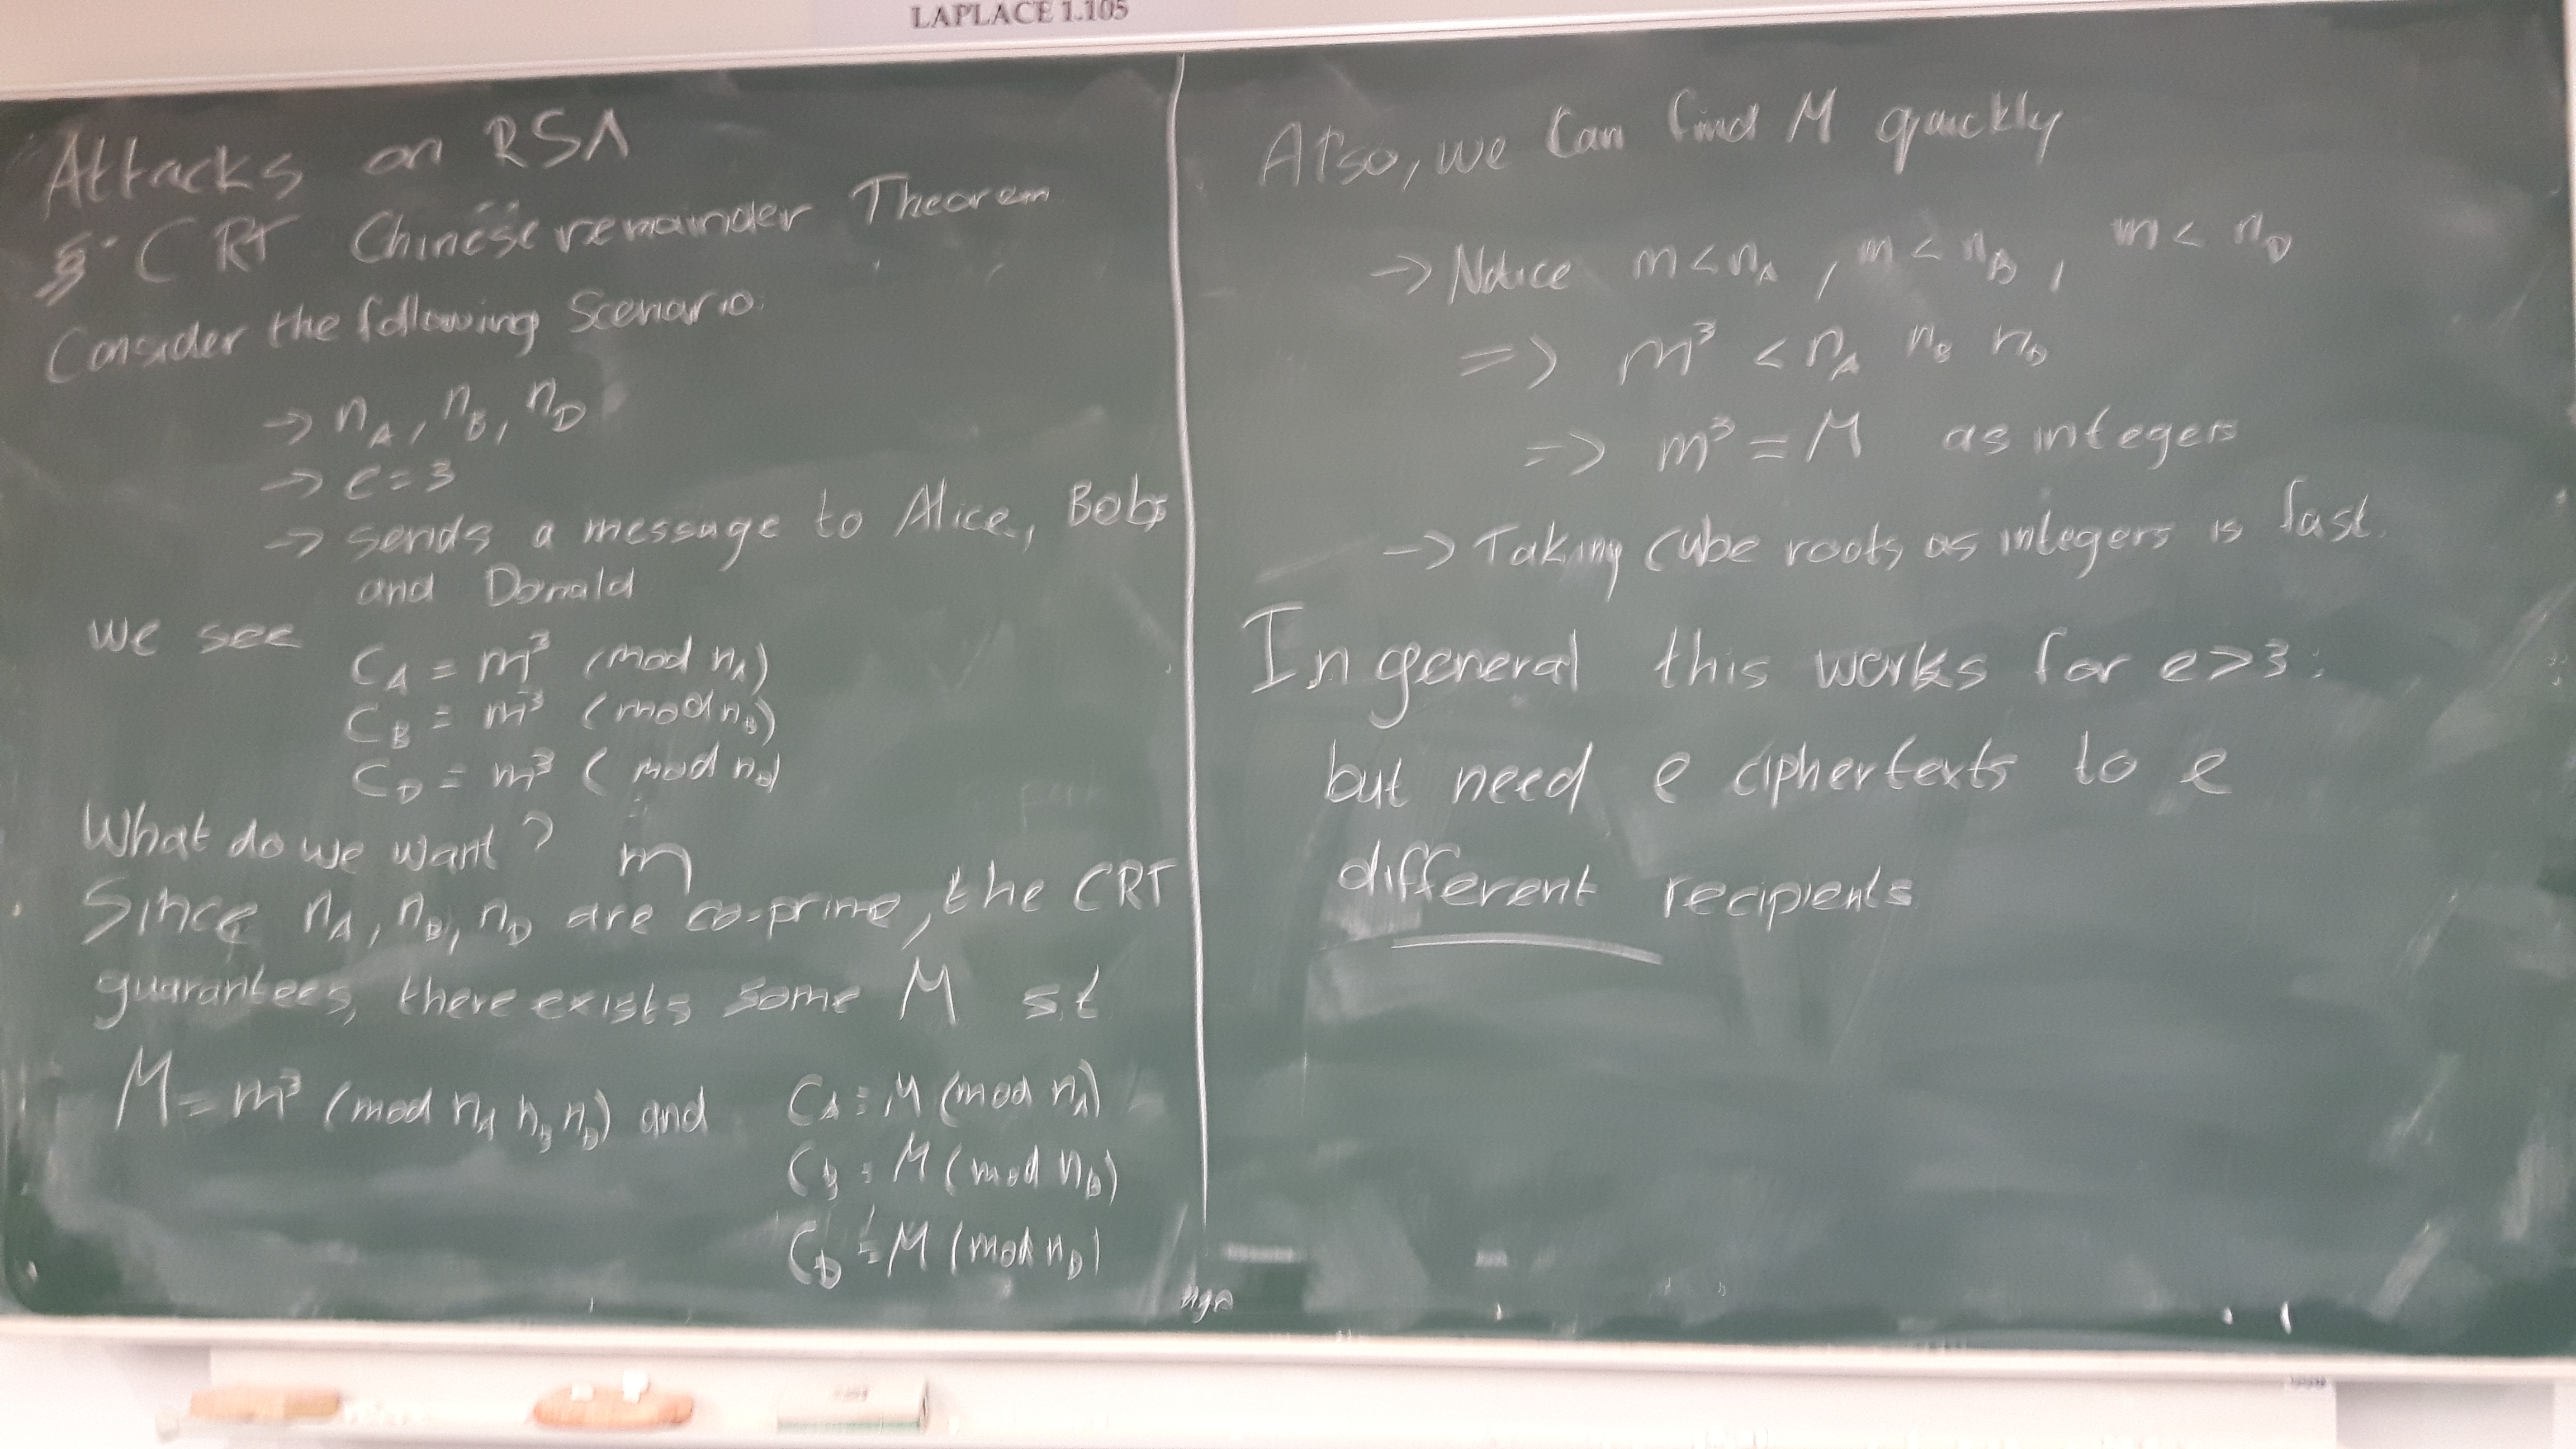 LAPLACE 1.105
Attacks on RSA
§ CRT Chinese remainder Theorem
Consider the following Scenario:
→ n_A, n_B, n_D
→ e=3
→ sends a message to Alice, Bob,
and Donald
we see
C_A = m³ (mod n_A)
C_B = m³ (mod n_B)
C_D = m³ (mod n_D)
What do we want? m
Since n_A, n_B, n_D are co-prime, the CRT
guarantees, there exists some M s.t
M = m³ (mod n_A n_B n_D) and C_A = M (mod n_A)
C_B = M (mod n_B)
C_D = M (mod n_D)
Also, we can find M quickly
→ Notice m < n_A, m < n_B, m < n_D
=> m³ < n_A n_B n_D
=> m³ = M as integers
→ Taking cube roots as integers is fast.
In general this works for e>3:
but need e ciphertexts to e
different recipients